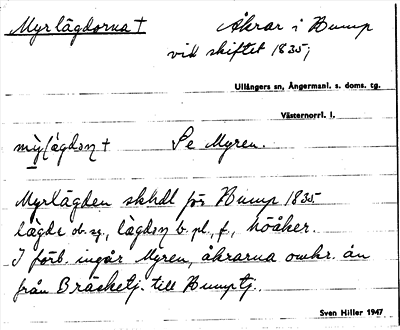 Myrlägdorna †
Åkrar i Bump
vid skiftet 1835;
Ullångers sn, Ångermanl. s. doms. tg.
Västernorrl. l.
Se Myren.
Myrlägden skhdl för Bump 1835
lägde ob. sg., lägdsn b. pl., f., höåker.
I förb. ingår Myren, åkrarna omkr. ån
från Bräcketj. till Bumptj.
Sven Hiller 1947